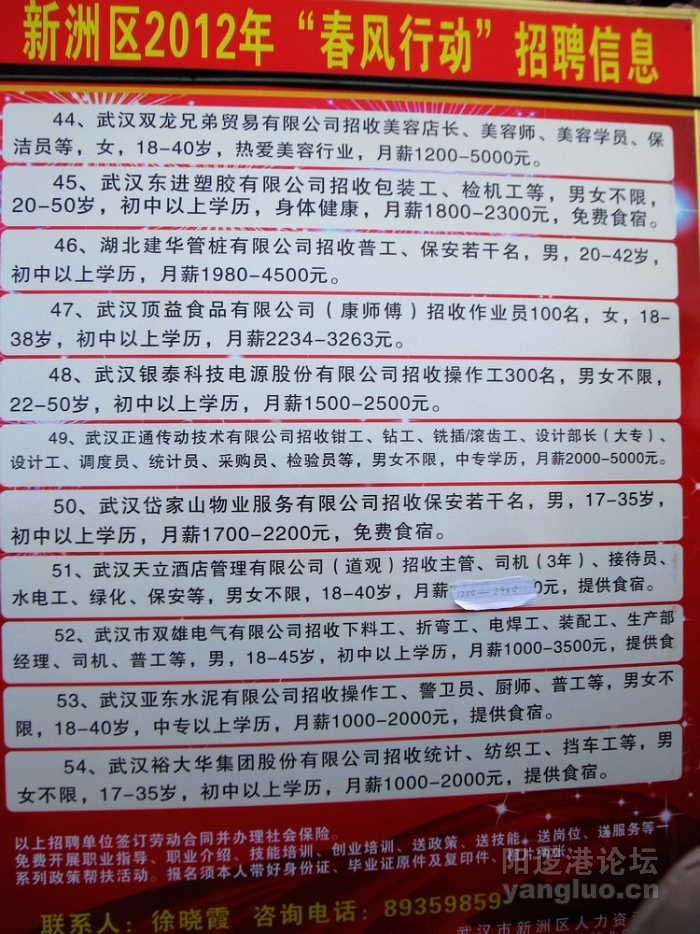 新洲区2012年“春风行动”招聘信息
44、武汉双龙兄弟贸易有限公司招收美容店长、美容师、美容学员、保
洁员等，女，18-40岁，热爱美容行业，月薪1200-5000元。
45、武汉东进塑胶有限公司招收包装工、检机工等，男女不限，
20-50岁，初中以上学历，身体健康，月薪1800-2300元，免费食宿。
46、湖北建华管桩有限公司招收普工、保安若干名，男，20-42岁，
初中以上学历，月薪1980-4500元。
47、武汉顶益食品有限公司（康师傅）招收作业员100名，女，18-
38岁，初中以上学历，月薪2234-3263元。
48、武汉银泰科技电源股份有限公司招收操作工300名，男女不限，
22-50岁，初中以上学历，月薪1500-2500元。
49、武汉正通传动技术有限公司招收钳工、钻工、铣插/滚齿工、设计部长（大专）、
设计工、调度员、统计员、采购员、检验员等，男女不限，中专学历，月薪2000-5000元。
50、武汉岱家山物业服务有限公司招收保安若干名，男，17-35岁，
初中以上学历，月薪1700-2200元，免费食宿。
51、武汉天立酒店管理有限公司（道观）招收主管、司机（3年）、接待员、
水电工、绿化、保安等，男女不限，18-40岁，月薪1200-2900元，提供食宿。
52、武汉市双雄电气有限公司招收下料工、折弯工、电焊工、装配工、生产部
经理、司机、普工等，男，18-45岁，初中以上学历，月薪1000-3500元，提供食
53、武汉亚东水泥有限公司招收操作工、警卫员、厨师、普工等，男女不
限，18-40岁，中专以上学历，月薪1000-2000元，提供食宿。
54、武汉裕大华集团股份有限公司招收统计、纺织工、挡车工等，男
女不限，17-35岁，初中以上学历，月薪1000-2000元，提供食宿。
以上招聘单位签订劳动合同并办理社会保险。
免费开展职业指导、职业介绍、技能培训、创业培训、送政策、送技能、送岗位、送服务等一
系列政策帮扶活动。报名须本人带好身份证、毕业证原件及复印件、
联系人：徐晓霞 咨询电话：89359859
武汉市新洲区人力资
阳逻港论坛
yangluo.cn